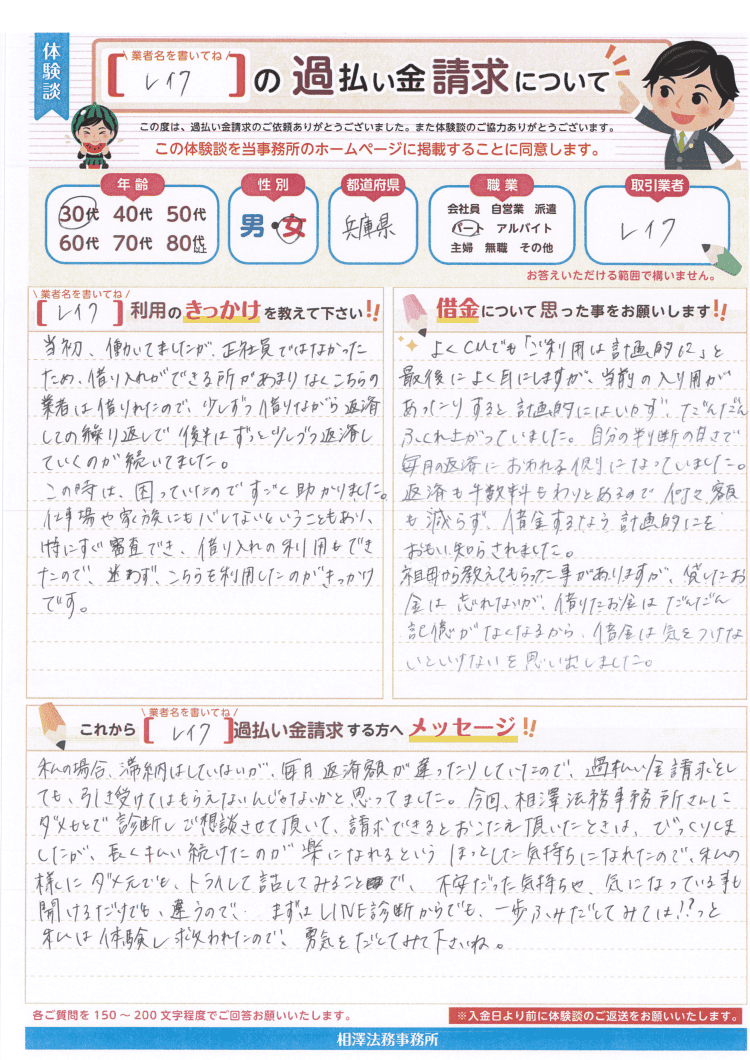 体験談
\ 業者名を書いてね /
[レイク]の過払い金請求について
この度は、過払い金請求のご依頼ありがとうございました。また体験談のご協力ありがとうございます。
この体験談を当事務所のホームページに掲載することに同意します。
年齢
30代 40代 50代
60代 70代 80代以上
性別
男・女
都道府県
兵庫県
職業
会社員 自営業 派遣
パート アルバイト
主婦 無職 その他
取引業者
レイク
お答えいただける範囲で構いません。
\ 業者名を書いてね /
[レイク]利用のきっかけを教えて下さい!!
当初、働いてましたが、正社員ではなかった
ため、借り入れができる所があまりなくこちらの
業者は借りれたので、少しずつ借りながら返済
しての繰り返しで後半はずっと少しづつ返済し
ていくのが続いてました。
この時は、困っていたのですごく助かりました。
仕事場や家族にもバレないということもあり、
特にすぐ審査でき、借り入れの利用もでき
たので、迷わず、こちらを利用したのがきっかけ
です。
借金について思った事をお願いします!!
よくCMでも「ご利用は計画的に」と
最後によく耳にしますが、当前の入り用が
あったりすると計画的にはいかず、だんだん
ふくれ上がっていました。自分の判断の甘さで
毎月の返済におわれる便りになっていました。
返済も手数料もわりとあるので何々額
も減らず、借金するなら計画的にを
おもい知らされました。
祖母から教えてもらった事がありますが、貸したお
金は忘れないが、借りたお金はだんだん
記憶がなくなるから、借金は気をつけな
いといけないを思い出しました。
\ 業者名を書いてね /
これから[レイク]過払い金請求する方へメッセージ!!
私の場合、滞納はしていないが、毎月返済額が違ったりしていたので、過払い金請求をし
ても、引き受けてはもらえないんじゃないかと思ってました。今回、相澤法務事務所さんに
ダメもとで診断しご相談させて頂いて、請求できるとおこたえ頂いたときは、びっくりしま
したが、長く払い続けたのが楽になれるというほっとした気持ちになれたので、私の
様にダメ元でも、トライして話してみることで、不安だった気持ちや、気になっている事も
聞けるだけでも、違うので、まずはLINE診断からでも、一歩ふみだしてみては!?っと
私は体験し救われたので、勇気をだしてみて下さいね。
各ご質問を150～200文字程度でご回答お願いいたします。
※入金日より前に体験談のご返送をお願いいたします。
相澤法務事務所